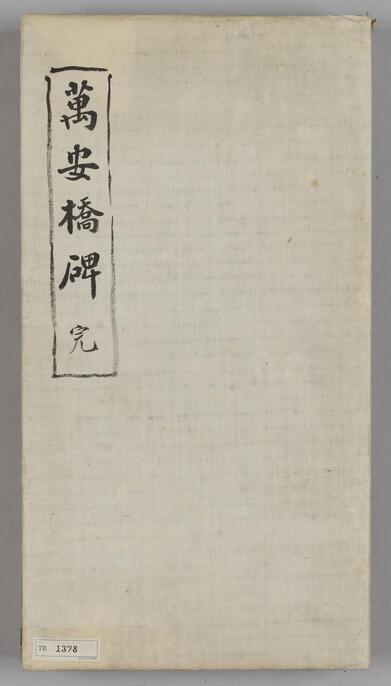 萬安橋碑 完
TB 1378